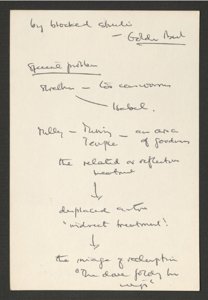 by blocked
— Golden Bowl
Special problem
Strether —
Isabel.
Milly — — an area
Temple — of goodness
the related or reflective
treatment
displaced action
'indirect treatment'.
the mirage of redemption
"The dove folds her
wings"